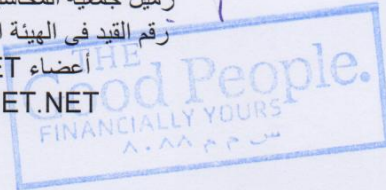 زميل جمعية المحاسبـ
رقم القيد فى الهيئة ا
أعضاء ET
ET.NET
THE
Good People.
FINANCIALLY YOURS
س م م ٨٠٨٨